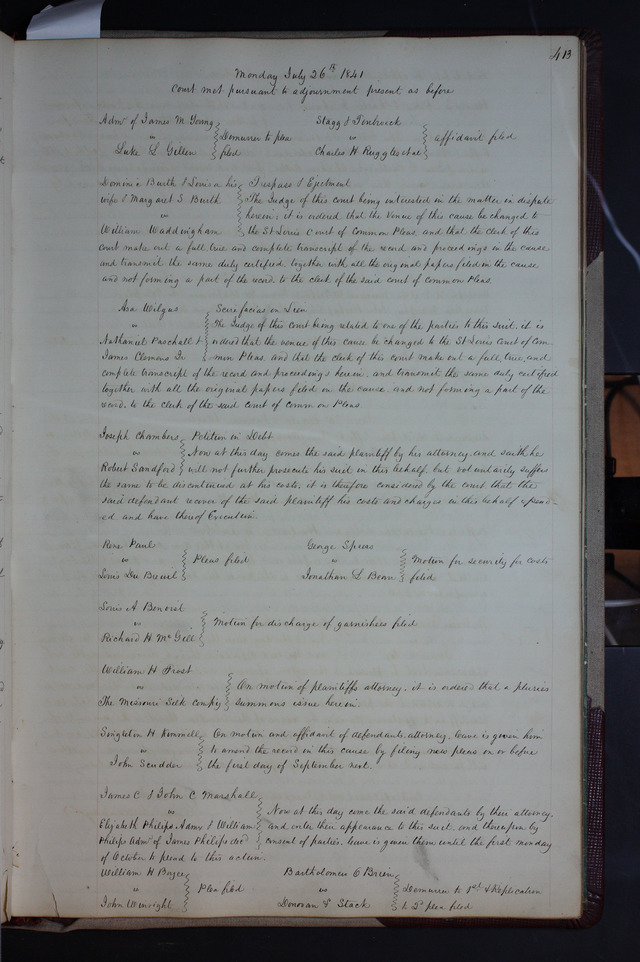 413
Monday July 26th 1841
Court met pursuant to adjournment present as before
Admr of James M Young Stagg &
vs Demurrer to plea vs affidavit filed
Luke L filed Charles H Ruggles et al
Dominic Burth & Louisa his Trespass & Ejectment
wife & Margaret S Burth The Judge of this court being interested in the matter in dispute
vs herein; it is ordered that the Venue of this cause be changed to
William Waddingham the St Louis Court of Common Pleas, and that the clerk of this
court make out a full, true and complete transcript of the record and proceedings in the cause
and transmit the same duly certified, together with all the original papers filed in the cause
and not forming a part of the record, to the clerk of the said court of common Pleas.
Asa Wilgus Scire facias on Lien
vs The Judge of this court being related to one of the parties to this suit, it is
Nathaniel Paschall & ordered that the venue of this cause be changed to the St Louis Court of Com
James Clemens Jr mon Pleas, and that the clerk of this court make out a full, true, and
complete transcript of the record and proceedings herein, and transmit the same duly certified
together with all the original papers filed in the cause, and not forming a part of the
record, to the clerk of the said court of common Pleas
Joseph Chambers Petition in Debt
vs Now at this day comes the said plaintiff by his attorney, and saith he
Robert Sandford will not further prosecute his suit in this behalf, but voluntarily suffers
the same to be discontinued at his costs, it is therefore considered by the court that the
said defendant recover of the said plaintiff his costs and charges in this behalf expend-
ed, and have thereof Execution.
Rene Paul George Speers
vs Pleas filed vs Motion for security for costs
Louis Du Breuil Jonathan L Bean filed
Louis A Benoist
vs Motion for discharge of garnishees filed
Richard H McGill
William H Frost
vs On motion of plaintiffs attorney, it is ordered that a pluries
The Missouri Silk compy summons issue herein.
Singleton H Kimmell On motion and affidavit of defendants attorney, leave is given him
vs to amend the record in this cause by filing new pleas, on or before
John Scudder the first day of September next.
James C & John C Marshall
vs Now at this day come the said defendants by their attorney,
Elizabeth Philips Admx & William and enter their appearance to this suit, and thereupon by
Philips Admr of James Philips decd consent of parties, leave is given them until the first monday
of October to plead to this action.
William H Bogce Bartholomew O Brien
vs Plea filed vs Demurrer to 1st & Replication
John Winright Donovan & Stack to 2d plea filed